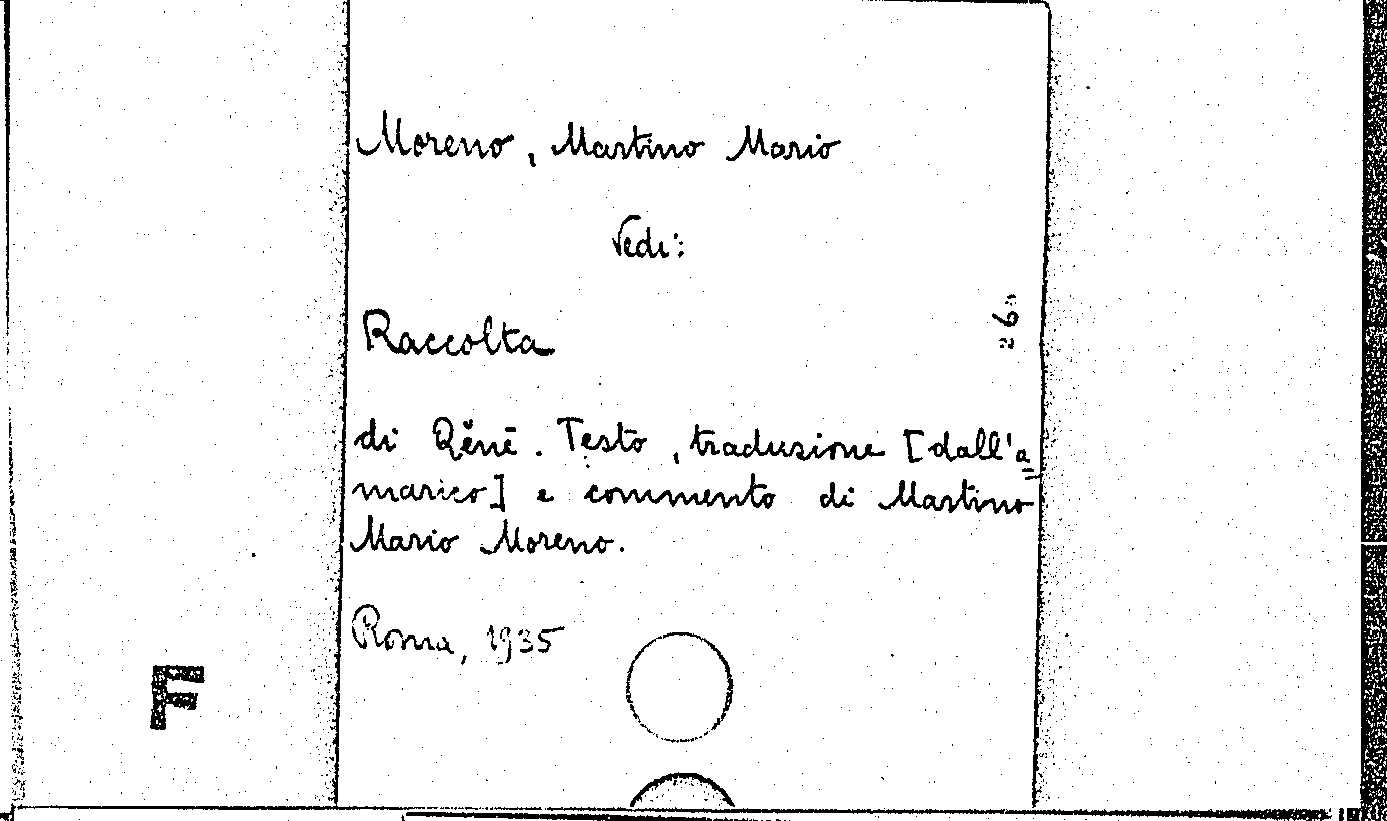 Moreno, Martino Mario
Vedi:
Raccolta
di Qĕnē. Testo, traduzione [dall'a
marico] e commento di Martino
Mario Moreno.
Roma, 1935
F